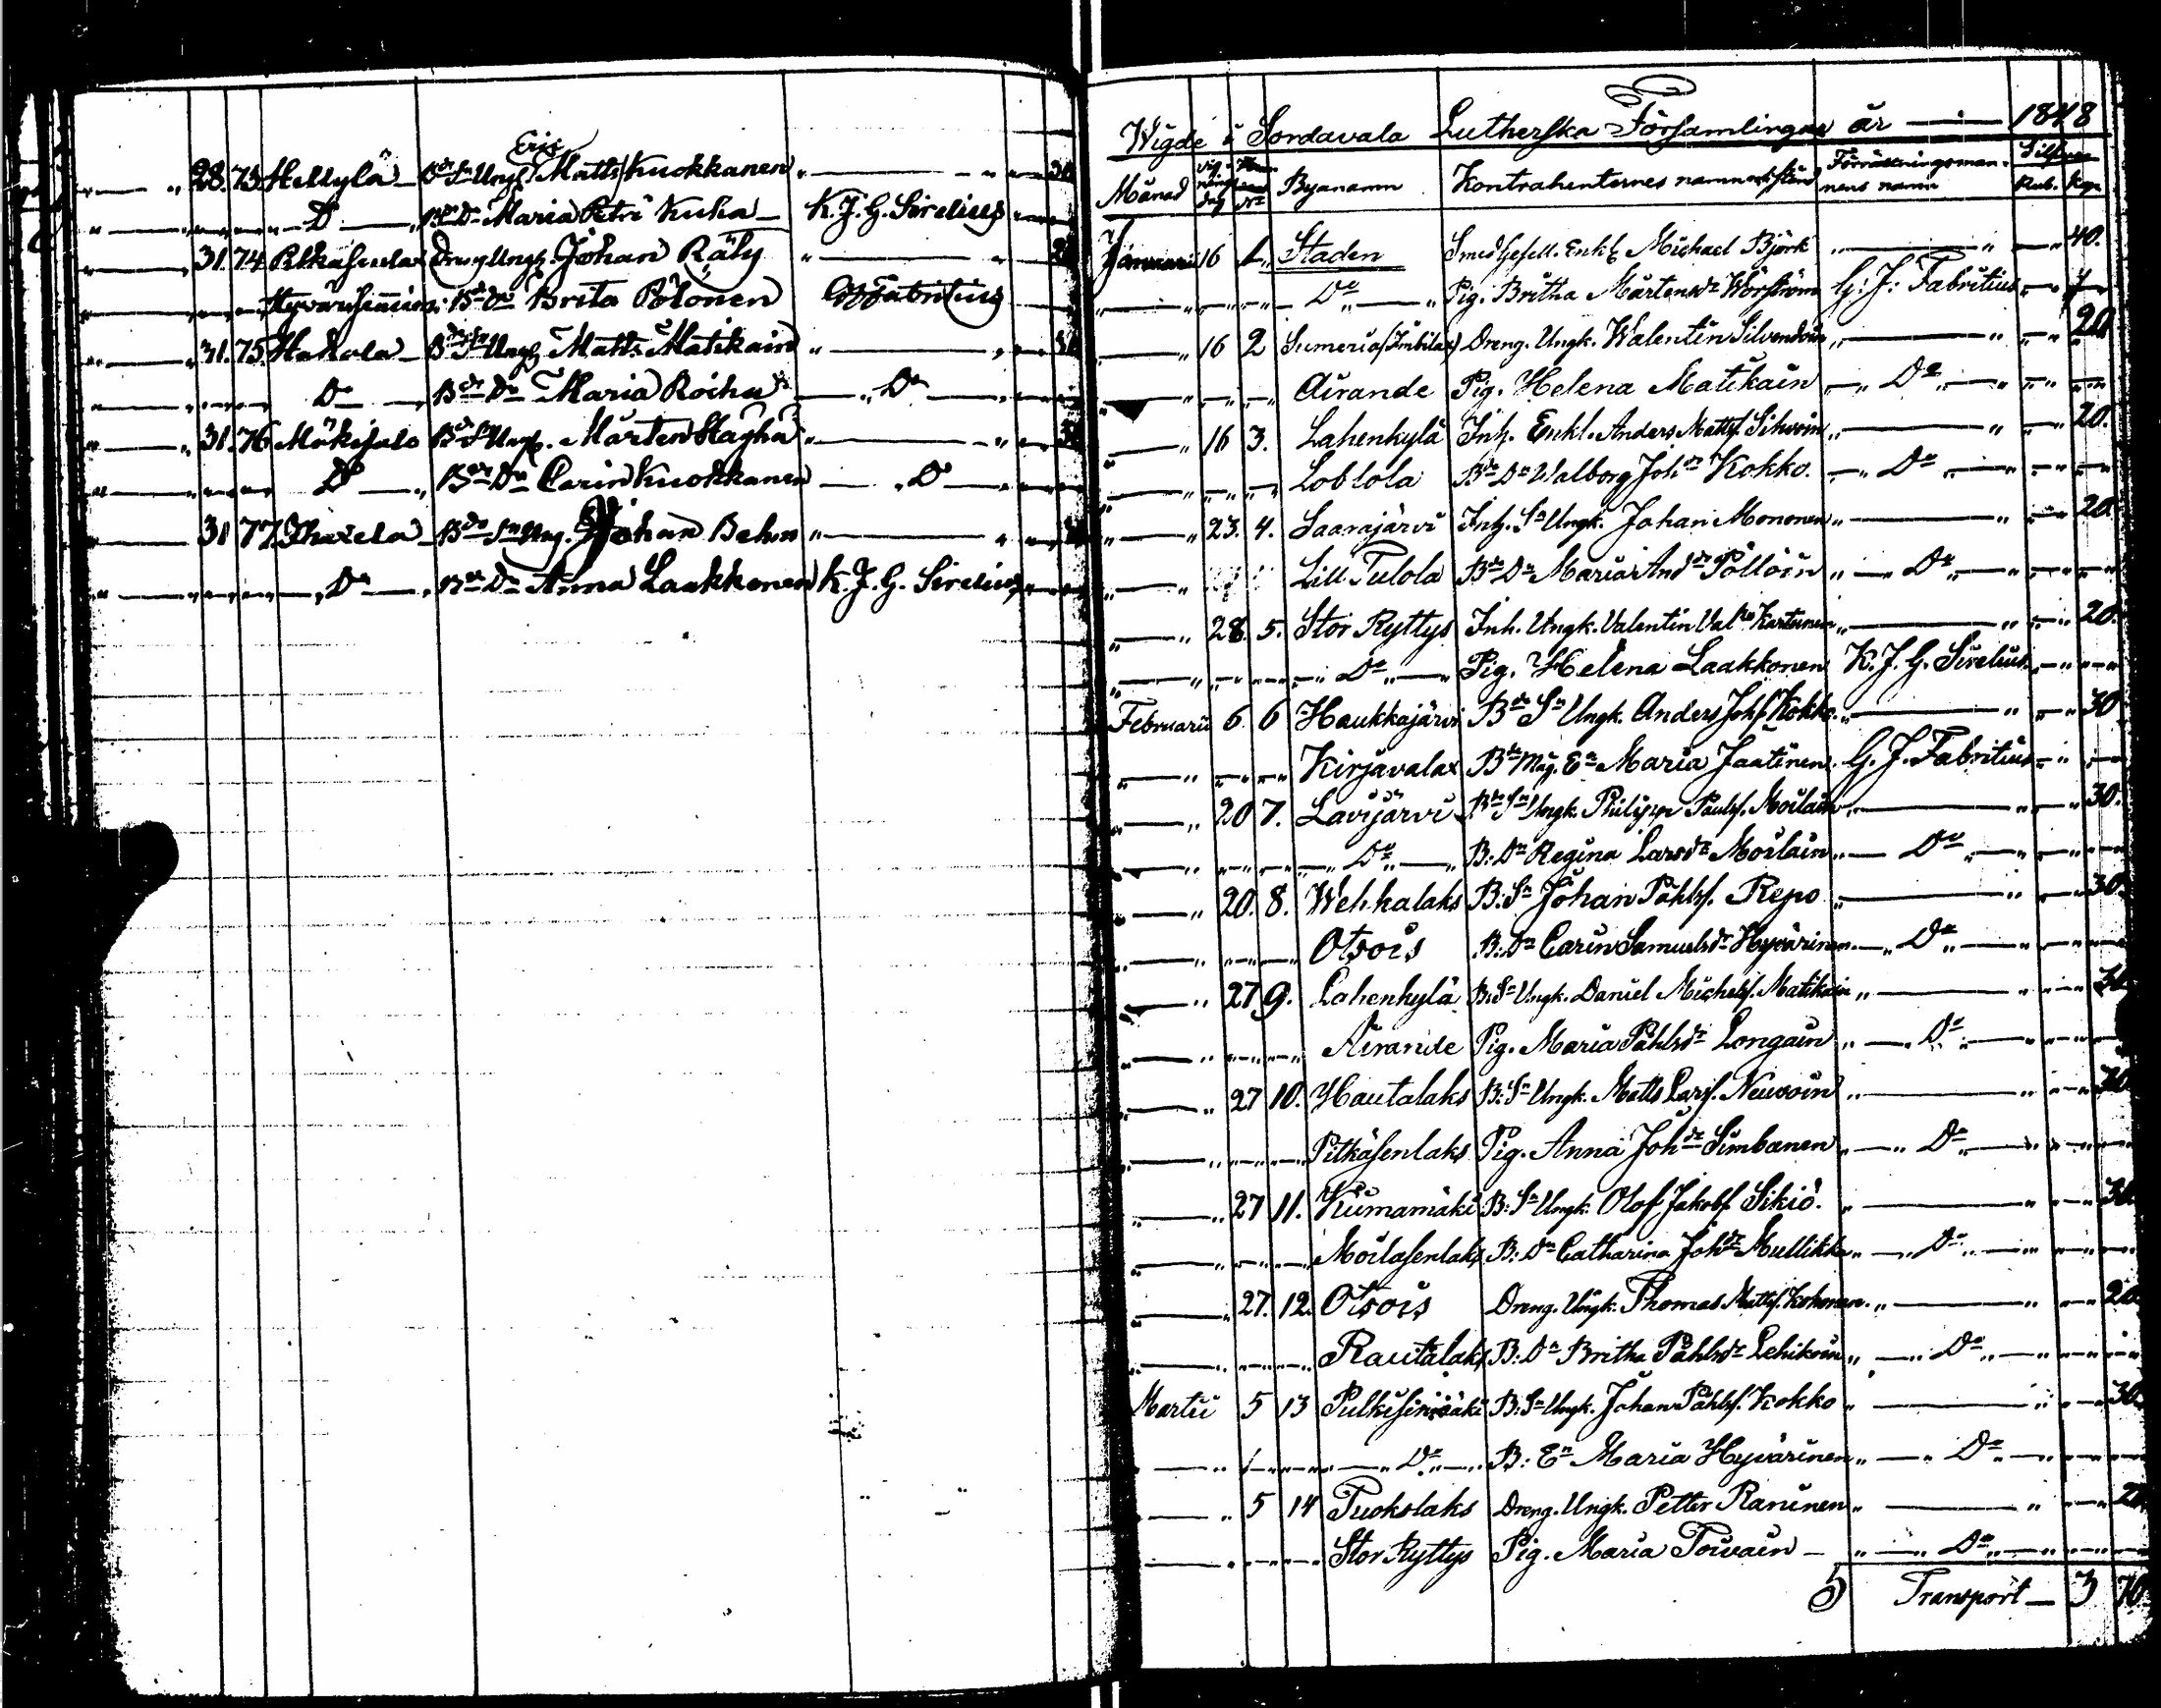 " — " 28. 73 Hellylä — Bde Sn Ungk Eric Matts Kuokkanen " — " 30
" — " Do — " Bde Dn Maria Petri Kuha — K. J. G. Sirelius
" — " 31. 74 Dreng Ungk. Johan Räty " — "
" — " Bde Dn Brita Pölönen G J Fabritius
" — " 31. 75. Hakola — Bde Sn Ungk Matts Matikain " — " 30
" — " Do — " Bde Dn Maria Roiha — " Do — "
" — " 31. 76 Mökisalo Bde Sn Ungk. Mårten Hayha " — " 30
" — " Do — " Bde Dn Carin Kuokkanen — " Do — "
" — " 31 77. Bde Sn Ung. Johan Behm " — " 30
" — " Do — " Bde Dn Anna Laakkonen K. J. G. Sirelius
Wigde i Sordavala Lutherska Församlingen år — 1848
Månad Vignings dag No Byanamn Kontrahenternes namn och stånd Förrättningsmannens namn Silfver Rub. Kop.
Januari 16 1. Staden Smedgesell. Enkl Michael Björk " — " 40.
" — " Do — " Pig. Britha Mårtensdr Worström G. J. Fabritius
" — " 16 2 Sumeria (Imbilax) Dreng. Ungk. Walentin Silvendoin " — " 20
" — " Airande Pig. Helena Matikain — " Do " — "
" — " 16 3. Lahenkylä Inh. Enkl. Anders Mattss. Sihvoin " — " 20.
" — " Loblola Bde Dn Walborg Johdr Kokko. — " Do " — "
" — " 23. 4. Saarajärvi Inh. Sn Ungk. Johan Mononen " — " 20.
" — " Lill Tulola Bde Dn Maria Anddr Pöllöin " — Do " — "
" — " 28. 5. Stor Ryttys Inh. Ungk. Valentin Vals Kartunen " — " 20.
" — " Do " — " Pig. Helena Laakkonen K. J. G. Sirelius
Februarii 6. 6 Haukkajärvi Bde Sn Ungk. Anders Johs. Kokko. " — " 30
" — " Kirjavalax Bde Måg. En Maria Jaatinen. G. J. Fabritius
" — " 20 7. Lavijärvi Bde Sn Ungk. Philipp Paulss. Moilain " — " 30.
" — " Do " — " B: Dn Regina Larsdr Moilain " — Do " — "
" — " 20. 8. Wehkalaks B: Sn Johan Påhlss. Repo " — " 30.
" — " Otsois B: Dn Carin Samuelsdr Hyvärinen — " Do " — "
" — " 27 9. Lahenkylä B: Sn Ungk. Daniel Michelss. Matikain " — " 30
" — " Airande Pig. Maria Påhlsdr Longain " — Do " — "
" — " 27 10. Hautalaks B: Sn Ungk. Matts Larss. Neuvoin " — " 30
" — " Pitkäsenlaks Pig. Anna Johdr Simbanen " — " Do " — "
" — " 27 11. Kumamäki B: Sn Ungk. Olof Jakobs. Sikiö. " — " 30
" — " Moilasenlaks B: Dn Catharina Johdr Mullikka " — Do " — "
" — " 27. 12. Otsois Dreng. Ungk. Thomas Mattss. Kohonen. " — " 20
" — " Rautalaks B: Dn Britha Påhlsdr Lehikoin " — " Do " — "
Martii 5 13 B: Sn Ungk. Johan Påhlss. Kokko " — " 30.
" — " Do " — " B: En Maria Hyvärinen " — " Do — "
" — " 5 14 Tuokslaks Dreng. Ungk. Petter Raninen " — " 20
" — " Stor Ryttys Pig. Maria Toivain — " — " Do " — "
Transport — 3 70